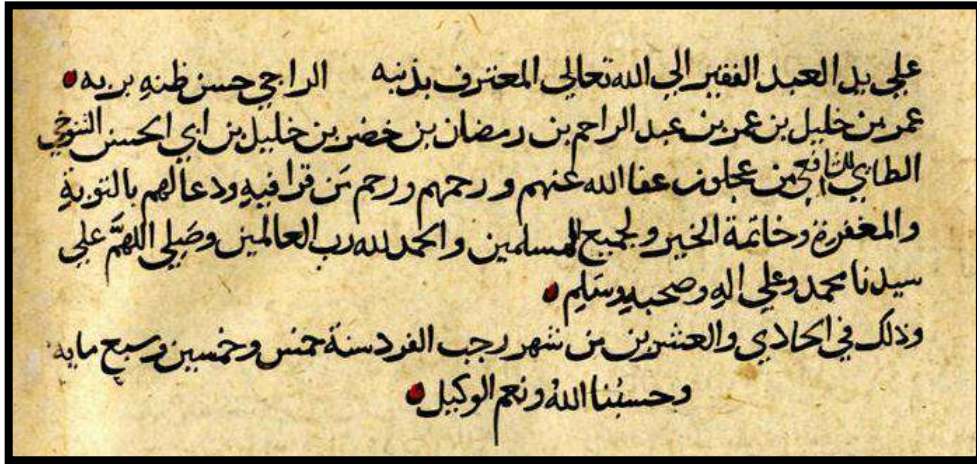 علي يد العبد الفقير الي الله تعالي المعترف بذنبه الراجي حسن ظنه بربه
عمر بن خليل بن عمر بن عبد الراحم بن رمضان بن خضر بن خليل بن ابي الحسن التنوخي
الطاي الشافعي من عجلون عفا الله عنهم ورحمهم ورحم من قرا فيه ودعا لهم بالتوبة
والمغفرة وخاتمة الخير ولجميع المسلمين والحمد لله رب العالمين وصلي اللهم علي
سيدنا محمد وعلي اله وصحبه وسلم
وذلك في الحادي والعشرين من شهر رجب الفرد سنة خمس وخمسين وسبع مايه
وحسبنا الله ونعم الوكيل